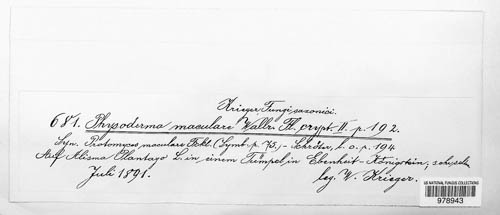 Krieger Fungi saxonici.
681. Physoderma maculare Wallr. Fl. crypt. II. p. 192.
Syn. Protomyces macularis Fckl. (Symb. p. 75,) – Schröter, l. c. p. 194.
Auf Alisma Plantago L. in einem Tümpel in Ebenheit – Königstein,
Juli 1891. leg. W. Krieger.
US NATIONAL FUNGUS COLLECTIONS
978943